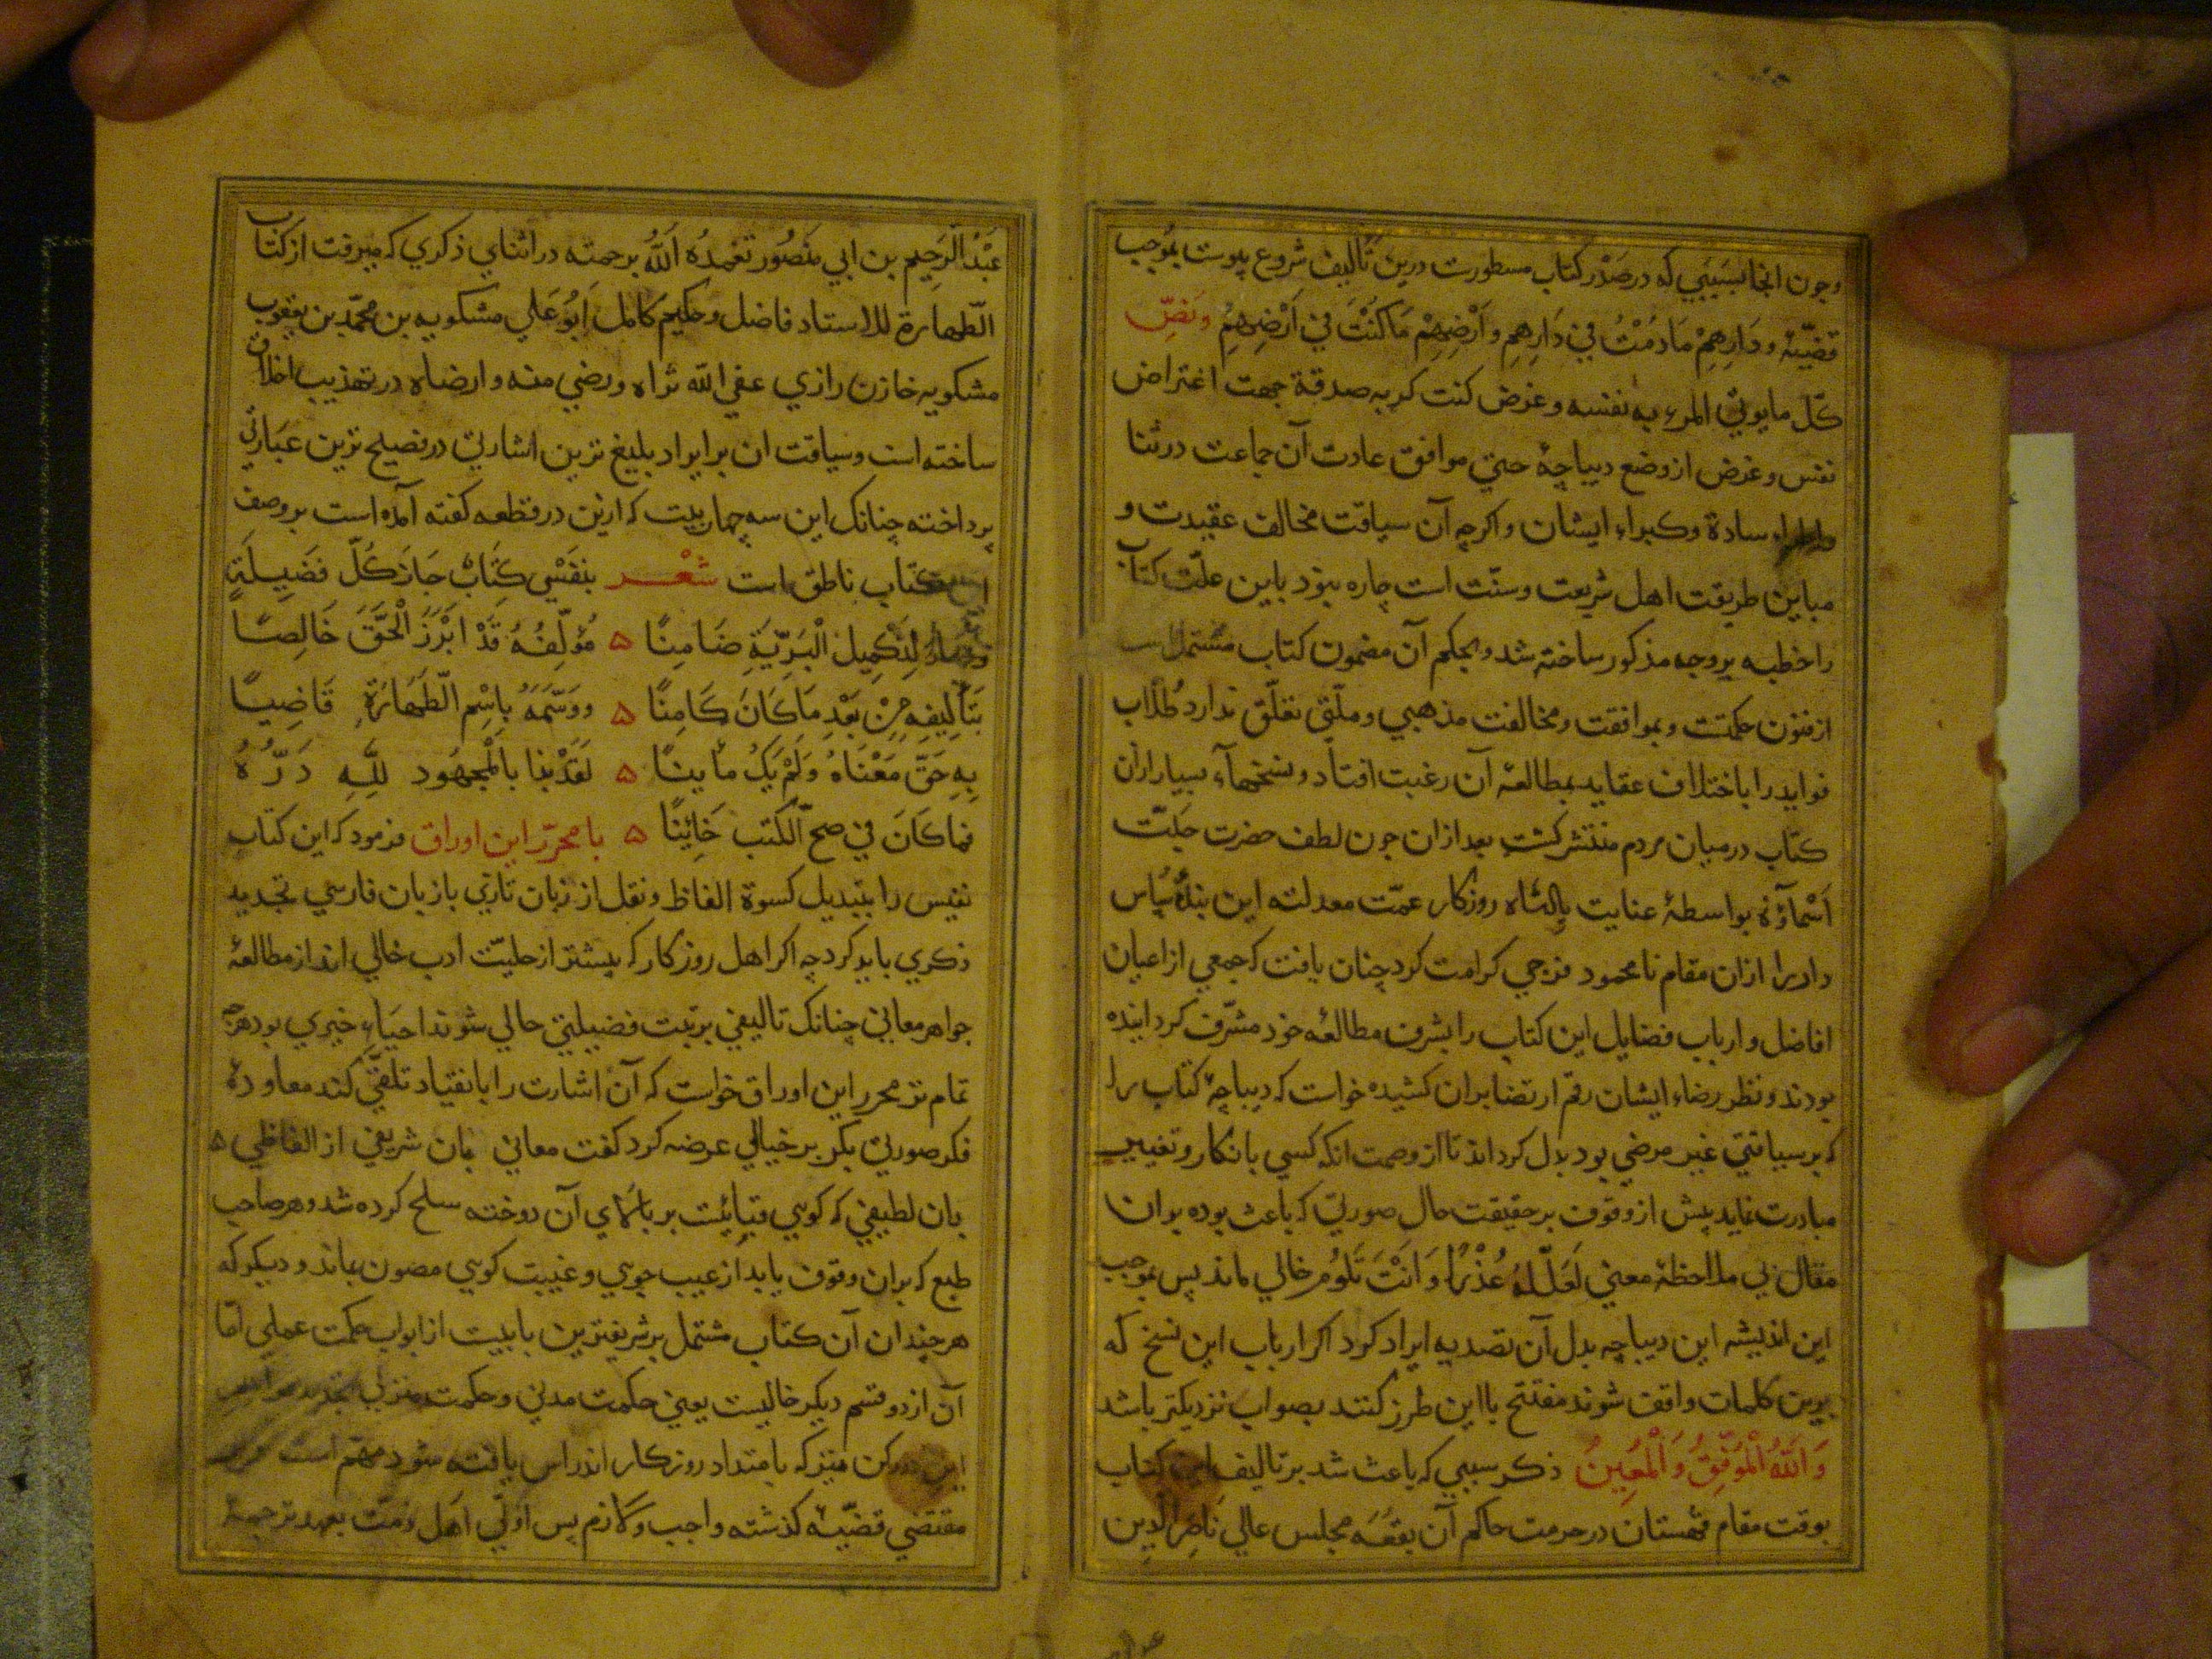 وجون انجا بسببي که در صَدْر کتاب مسطورست درين تأليف شروع پيوست بمُوجب
قضيّهٔ ودَارِهِمْ مَادُمْتُ في دَارِهِم وَارْضِهِمْ مَا کنْتَ في اَرْضِهِمُ وَنَصِّ
کلّ ما يوقي المرء به نفسه وعرض کتبت کر به صدقة جهت اعتراض
نفس وعرض از وضع ديباچهٔ حتى موافق عادت آن جماعت در ثنا
واطراء سادة وکبراء ايشان واکرچه آن سياقت مخالف عقيدت و
مباين طريقت اهل شريعت وسنّت است چاره نبود باين علّت کتاب
را خطبه بر وجه مذکور ساخته شد وبحکم آن مضمون کتاب مشتمل
از فنون حکمتست وبموافقت ومخالفت مذهبي وملّتي تعلّق ندارد طُلّاب
فوايد را با اختلاف عقايد بمطالعهٔ آن رغبت افتاد ونسخهآء بسيار ازان
کتاب در ميان مردم منتشر کشت بعد ازان جون لطف حضرت جَلّت
اَسْمَآؤهُ بواسطهٔ عنايت پادشاه روزکار عمّت معدلته اين بندهٔ سپاس
دار را ازان مقام نامحمود فرجي کرامت کرد چنان يافت که جمعي از اعيان
افاضل وارباب فضايل اين کتاب را بشرف مطالعه خود مشرّف کردانيده
بودند ونظر رضاء ايشان رقم ارتضا بران کشيده خواست که ديباچهٔ کتاب را
که بر سياقتي غير مرضي بود بدل کرداند تا از وصمت انکه کسي بانکار وتغيير
مبادرت نمايد پيش از وقوف بر حقيقت حال صورتي که باعث بوده بران
مقال بي ملاحظهٔ معني لَعَلّ لهُ عُذْرًا وَاَنْتَ تَلُومُ خالي ماند پس بموجب
اين انديشه اين ديباچه بدل آن تصديه ايراد کرد اکر ارباب اين نسخ که
برين کلمات واقف شوند مفتتح با اين طرز کنند بصواب نزديکتر باشد
وَاللّهُ الْمُوَفِّقُ وَالْمُعِينُ ذکر سببي که باعث شد بر تاليف اين کتاب
بوقت مقام قهستان در خدمت حاکم آن بقعه مجلس عالي نَاصِر الدّين
عَبْدُ الرّحِيم بن ابي مَنْصُور تغمدُه اَللّهُ برحمته در اثناي ذکري که ميرفت از کتاب
الطّهارة للاستاد فاضل وحکيم کامل اَبُو عَلي مشکويه بن محمّد بن يعقوب
مشکويه خازن رازي عفي الله ثراه ورضي منه وارضاه در تهذيب اخلاق
ساخته است وسياقت ان بر ايراد بليغ ترين اشارتي در فصيح ترين عبارتي
پرداخته چنانک اين سه چهار بيت که ازين در قطعه کفته آمده است بر وصف
ان کتاب ناطق است شعــر بنفسْي کتَابٌ حَازَ کُلّ فَضِيلَةٍ
وصَارَ لِتکْمِيل الْبَرِيّةِ ضَامِنًا ۵ مُؤَلّفُهُ قَدْ ابْرَزَ الْحَقّ خَالِصًا
بتَأليفِهِ مِنْ بَعْدِ مَا کَانَ کَامِنًا ۵ ووَسّمَهُ باِسْمِ الطّهَارَةِ قَاضِيًا
بِهِ حَقّ مَعْنَاهُ وَلَمْ يَکُ مَايِنًا ۵ لَقدْ بذا بالْمجهُود لِلّهِ دَرّهُ
فما کَانَ في نصح الکتب خَائنًا ۵ با محرّر اين اوراق فرمود که اين کتاب
نفيس را بتبديل کسوة الفاظ ونقل از زبان تازي بازبان فارسي تجديد
ذکري بايد کرد چه اکر اهل روزکار که بيشتر از حليّت ادب خالي اند از مطالعهٔ
جواهر معاني چنانک تاليفي بزينت فضيلتي حالي شوند احياء خيري بود هرچه
تمام تر محرر اين اوراق خواست که آن اشارت را بانقياد تلقّي کند معاودهٔ
فکر صورتي بکر بر خيالي عرضه کرد کفت معاني بدان شريفي از الفاظي ۵
بدان لطيفي که کويي قبايئست بر بالاي آن دوخته سلخ کرده شد وهر صاحب
طبع که بران وقوف يابد از عيب جويي وغيبت کويي مصون نماند وديکر که
هر چندان آن کتاب مشتمل بر شريفترين بابيست از ابواب حکمت عملي امّا
آن از دو قسم ديکر خاليست يعني حکمت مدني وحکمت منزلي
اين دو رکن نيز که بامتداد روزکار اندراس يافته شود مهم است
مقتضي قضيّهٔ کذشته واجب ولازم پس اولي اهل ذمّت بعهد ترجمهٔ